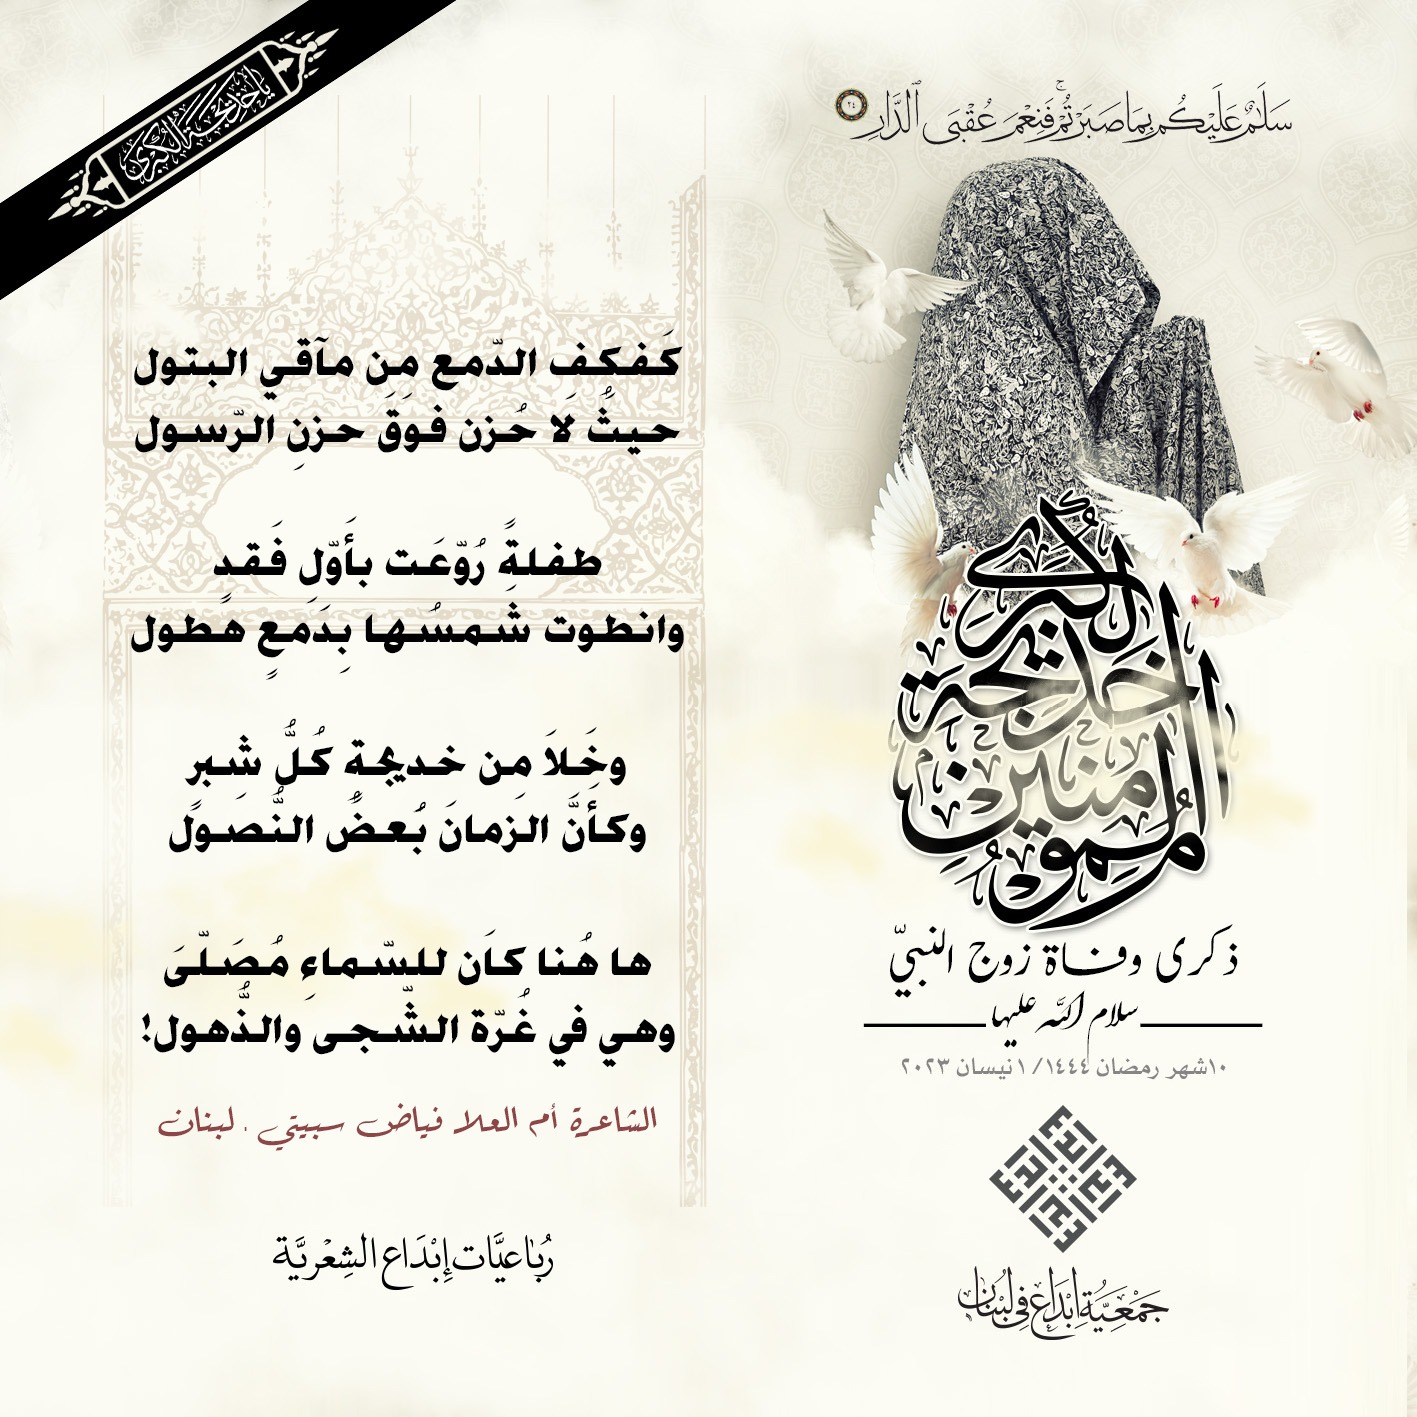 يا خديجة الكبرى
سَلَامٌ عَلَيْكُم بِمَا صَبَرْتُمْ ۚ فَنِعْمَ عُقْبَى ٱلدَّارِ ٢٤
كَفكفِ الدّمع مِن مآقي البتول
حيثُ لا حُزن فوقَ حزنِ الرّسول
طفلةً رُوّعَت بأَوّلِ فَقدٍ
وانطوت شمسُها بِدَمعٍ هطول
وخَلاَ مِن خديجةٍ كُلُّ شِبرٍ
وكأنَّ الزمانَ بُعضُ النُّصول
ها هُنا كاَن للسّماءِ مُصَلّىَ
وهي في غُرّة الشّجى والذُّهول!
الشاعرة أم العلا فياض سبيتي . لبنان
رُباعيَّات إِبْدَاع الشِعْريَّة
أم المؤمنين خديجة الكبرى
ذكرى وفاة زوج النبيّ
سلام الله عليها
١٠شهر رمضان ١٤٤٤/ ١نيسان ٢٠٢٣
إبداع
جَمْعِيَّةُ إِبْدَاع فِي لُبْنَان